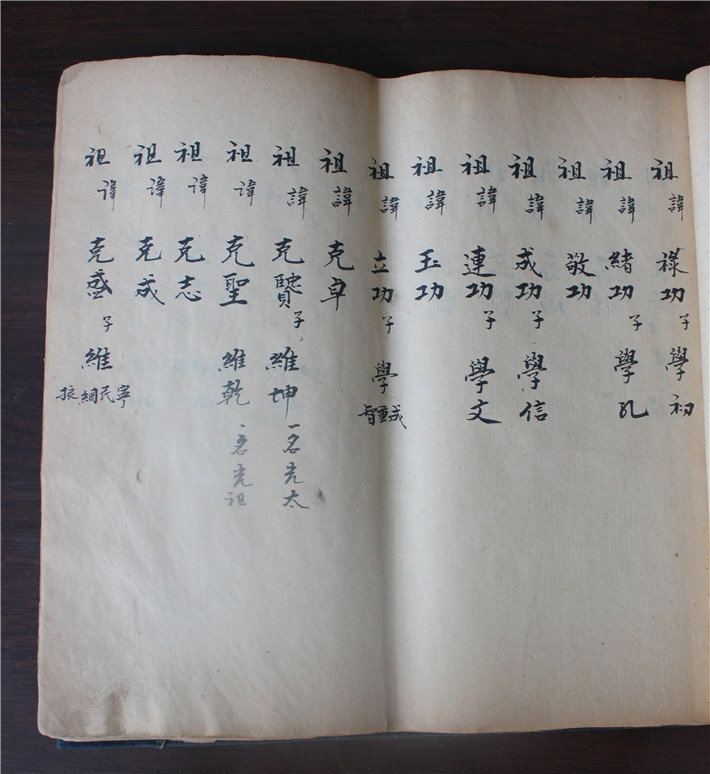 祖諱祿功子學初
祖諱緒功子學孔
祖諱敬功
祖諱成功子學信
祖諱連功子學文
祖諱玉功
祖諱立功子學成重智
祖諱克卓
祖諱克賢子維坤一名光太
祖諱克聖維乾一名光祖
祖諱克志
祖諱克成
祖諱克盛子維寧民綱振